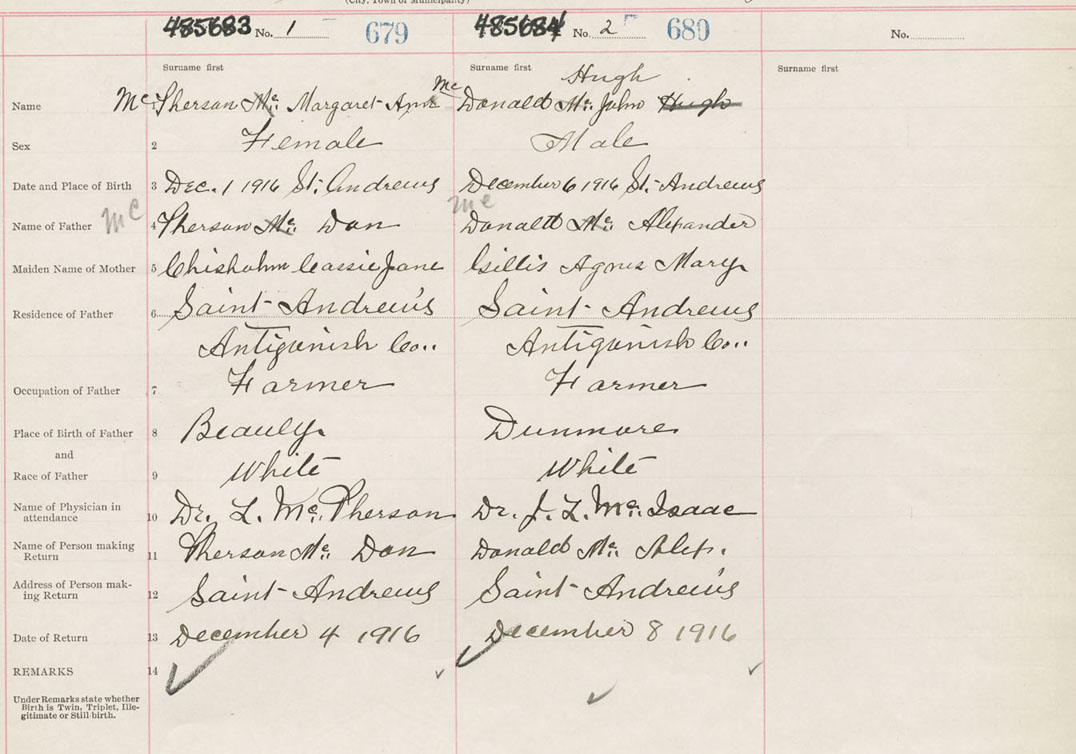 (City, Town or Municipality)
485683 No. 1 679 485684 No. 2 680 No.
Surname first Surname first Surname first
Hugh
Name Mc 1 Pherson Mc. Margaret Ann Mc Donald Mc. John Hugh
Sex 2 Female Male
Date and Place of Birth 3 Dec. 1 1916 St. Andrews December 6 1916 St. Andrews
Name of Father Mc 4 Pherson Mc. Dan Mc Donald Mc. Alexander
Maiden Name of Mother 5 Chisholm Cassie Jane Gillis Agnes Mary
Residence of Father 6 Saint Andrew's Saint Andrews
Antigonish Co.. Antigonish Co..
Occupation of Father 7 Farmer Farmer
Place of Birth of Father 8 Beauly. Dunmore
and
Race of Father 9 White White
Name of Physician in
attendance 10 Dr. L. Mc. Pherson Dr. J. L. Mc. Isaac
Name of Person making
Return 11 Pherson Mc. Dan Donald Mc. Alex.
Address of Person mak-
ing Return 12 Saint Andrews Saint Andrew's
Date of Return 13 December 4 1916 December 8 1916
REMARKS 14
Under Remarks state whether
Birth is Twin, Triplet, Ille-
gitimate or Still-birth.